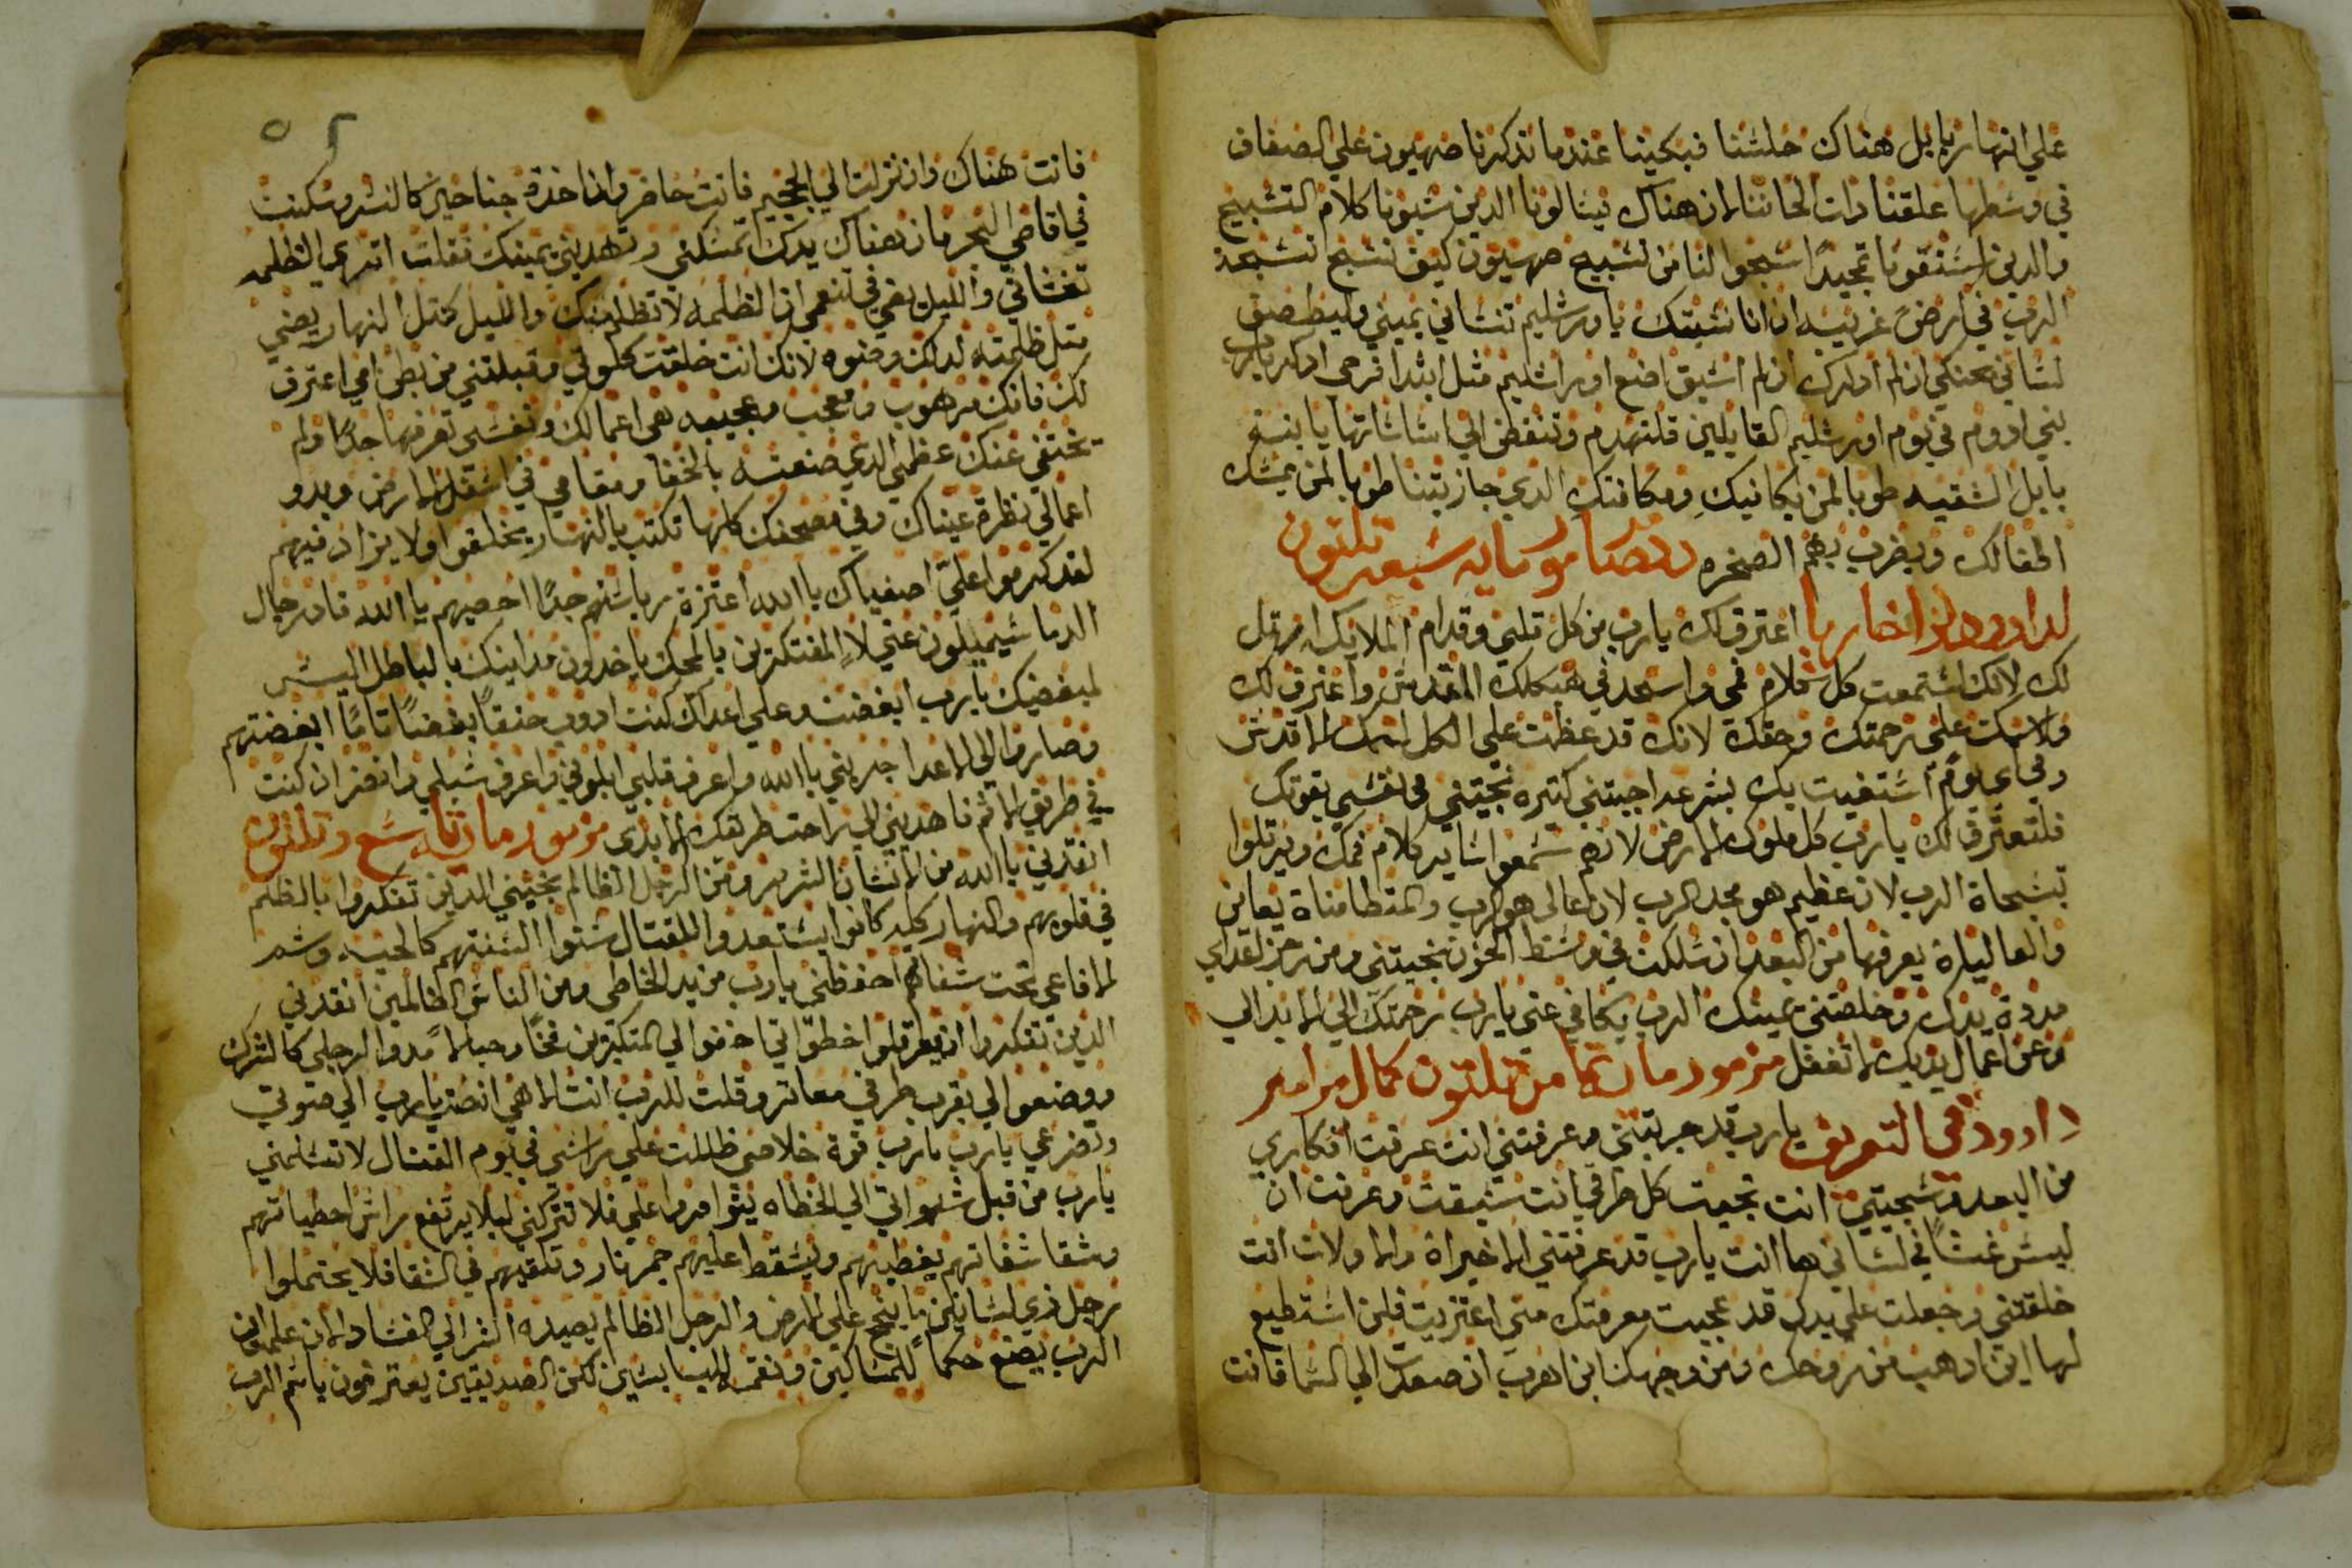 علي انهار بابل هناك جلسنا فبكينا عندما تذكرنا صهيون علي الصفاف
في وسطها علقنا دات الحاننا لان هناك يسالونا الدين سبونا كلام التسبيح
والدين استقونا تمجيدًا سبحوا لنا من تسبيح صهيون كيف نسبح تسبحة
الرب في ارض غريبه ان انا نسيتك يا اورشليم تنساني يميني وليلصق
لساني بحنكي ان لم ادكرك ان لم اسبق اضع اوراشليم مثل ابتدا فرحي ادكر يارب
بني ادوم في يوم اورشليم القايلين قلتهدم وتنقض الي اساساتها يا بنت
بابل الشقيه طوبا لمن يكافيكِ ومكافتك الدي جازيتينا طوبا لمن يمسك
اطفالك ويضرب بهم الصخره مزمور مايه سبعه تلتون
لداوود اعترف لك يارب من كل قلبي وقدام الملايكه ارتل
لك لانك استمعت كل كلام فمي واسجد في هيكلك المقدس واعترف لك
ولاسمك علي رحمتك وحقك لانك قد عظمت علي الكل اسمك الاقدس
وفي اي يومٍ استغيت بك بسرعه اجبتني كتره نجيتني في نفسي بقوتك
فلتعترف لك يارب كل ملوك الارض لانهم سمعوا ساير كلام فمك ويرتلوا
تسبحاة الرب لان عظيم هو مجد الرب لان عالي هو الرب والمتطامناة يعاين
والعاليلة يعرفها من البعد ان سلكت في وسط الحزن نجيتني ومن رجز اعداي
مددة يدك وخلصتني يمينك الرب يكافي عني يارب رحمتك الي الابد الي
وعن اعمال يديك لا تغفل مزمور مايه تامن تلتون كمال مزامير
داوود في التعريف يارب قد جربتني وعرفتني انت عرفت افكاري
من البعد وسجيتي انت نجيت كل طرقي انت سبقت وعرفت ان
ليس غشًا في لساني ها انت يارب قد عرفتني الاخيراة والاولات انت
خلقتني وجعلت علي يدك قد عجبت معرفتك مني اعتزيت فلن استطيع
لها اين ادهب من روحك ومن وجهك اين اهرب ان صعدت الي السما فانت
فانت هناك وان نزلت الي الجحيم فانت حاضر وان اخذة جناحين كالنسر وسكنت
في اقاصي البحر فان هناك يدك تمسكني وتهديني يمينك فقلت اترى الظلمه
تغشاني والليل يضي في تنعمي ان الظلمه لا تظلم منك والليل كمتل النهار يضي
متل ظلمته كدلك وضوه لانك انت خلقت كلوتي وقبلتني من بطن امي اعترف
لك فانك مرهوب ومعجب وعجيبه هي اعمالك ونفسي تعرفها جدًا ولم
تختفي عنك عظمي الدي صنعته بالخفا ومقامي في اسفل الارض وبدو
اعمالي نظرة عيناك وفي مصحفك كلها تكتب بالنهار يخلقوا ولا يزاد فيهم
لقد كرموا عليّ اصفياك يا الله اعتزة رياستهم جدًا احصيهم يا الله فاد رجال
الدما سيميلون عني لاٍ المفتكرين بالمحك ياخدون مداينك بالباطل اليس
لمبغضيك يارب ابغضت وعلي اعداك كنت ادوب حنقًا بغضًا تامًا ابغضتهم
وصاروا الي الاعدا جربني يا الله واعرف قلبي ابلوني واعرف سبلي وانظر ان كنت
في طريق الاثم فاهديني الي راحت طريقك الابدى مزمور مايه تسع وتلتون
انقذني يا الله من الانسان الشرير ومن الرجل الظالم نجيني الدين تفكروا بالظلم
في قلوبهم والنهار كله كانوا يستعدوا للقتال سنوا السنتهم كالحيه وسم
الافاعي تحت شفاتهم احفظني يارب من يد الخاطي ومن الناس الظالمين انقدني
الدين تفكروا ان يعرقلوا خطواتي اخفوا لي المتكبرين فخًا وحبالاً مدوا لرجلي كالشرك
ووضعوا لي بقرب طرقي معاتر وقلت للرب انت الاهي انصت يارب الي صوتي
وتضرعي يارب يارب قوة خلاصي ظللت علي راسي في يوم القتال لا تسلمني
يارب من قبل شهواتي الي الخطاه يتوامروا علي فلا تتركني ليلا يرتفع راس احطياتهم
وشقا شفاتهم يغطيهم ويسقط عليهم جمر نار وتلقيهم في الشقا فلا يحتملوا
رجل ذي لسانكن ما ينجح علي الارض والرجل الظالم يصيده الشر الي الفساد الان علمت ان
الرب يصنع حكماً للمساكين ونقمه للبايسين لكن الصديقين يعترفون باسم الرب